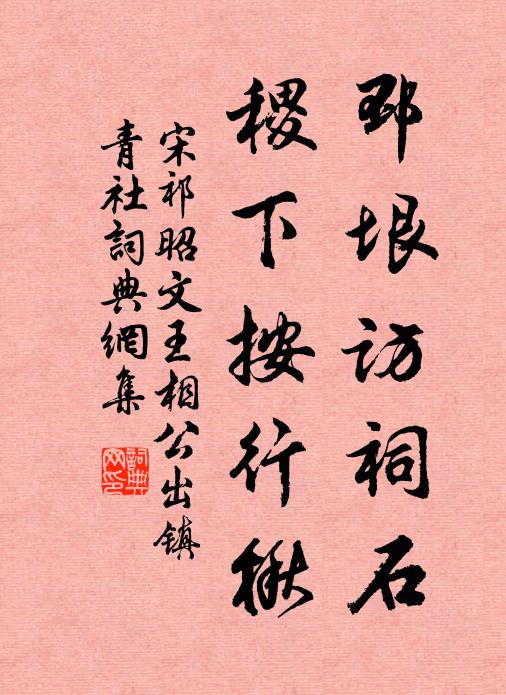 邳垠访祠石
稷下按行楸
宋祁昭文王相公出镇
青社词典网集
词典网印